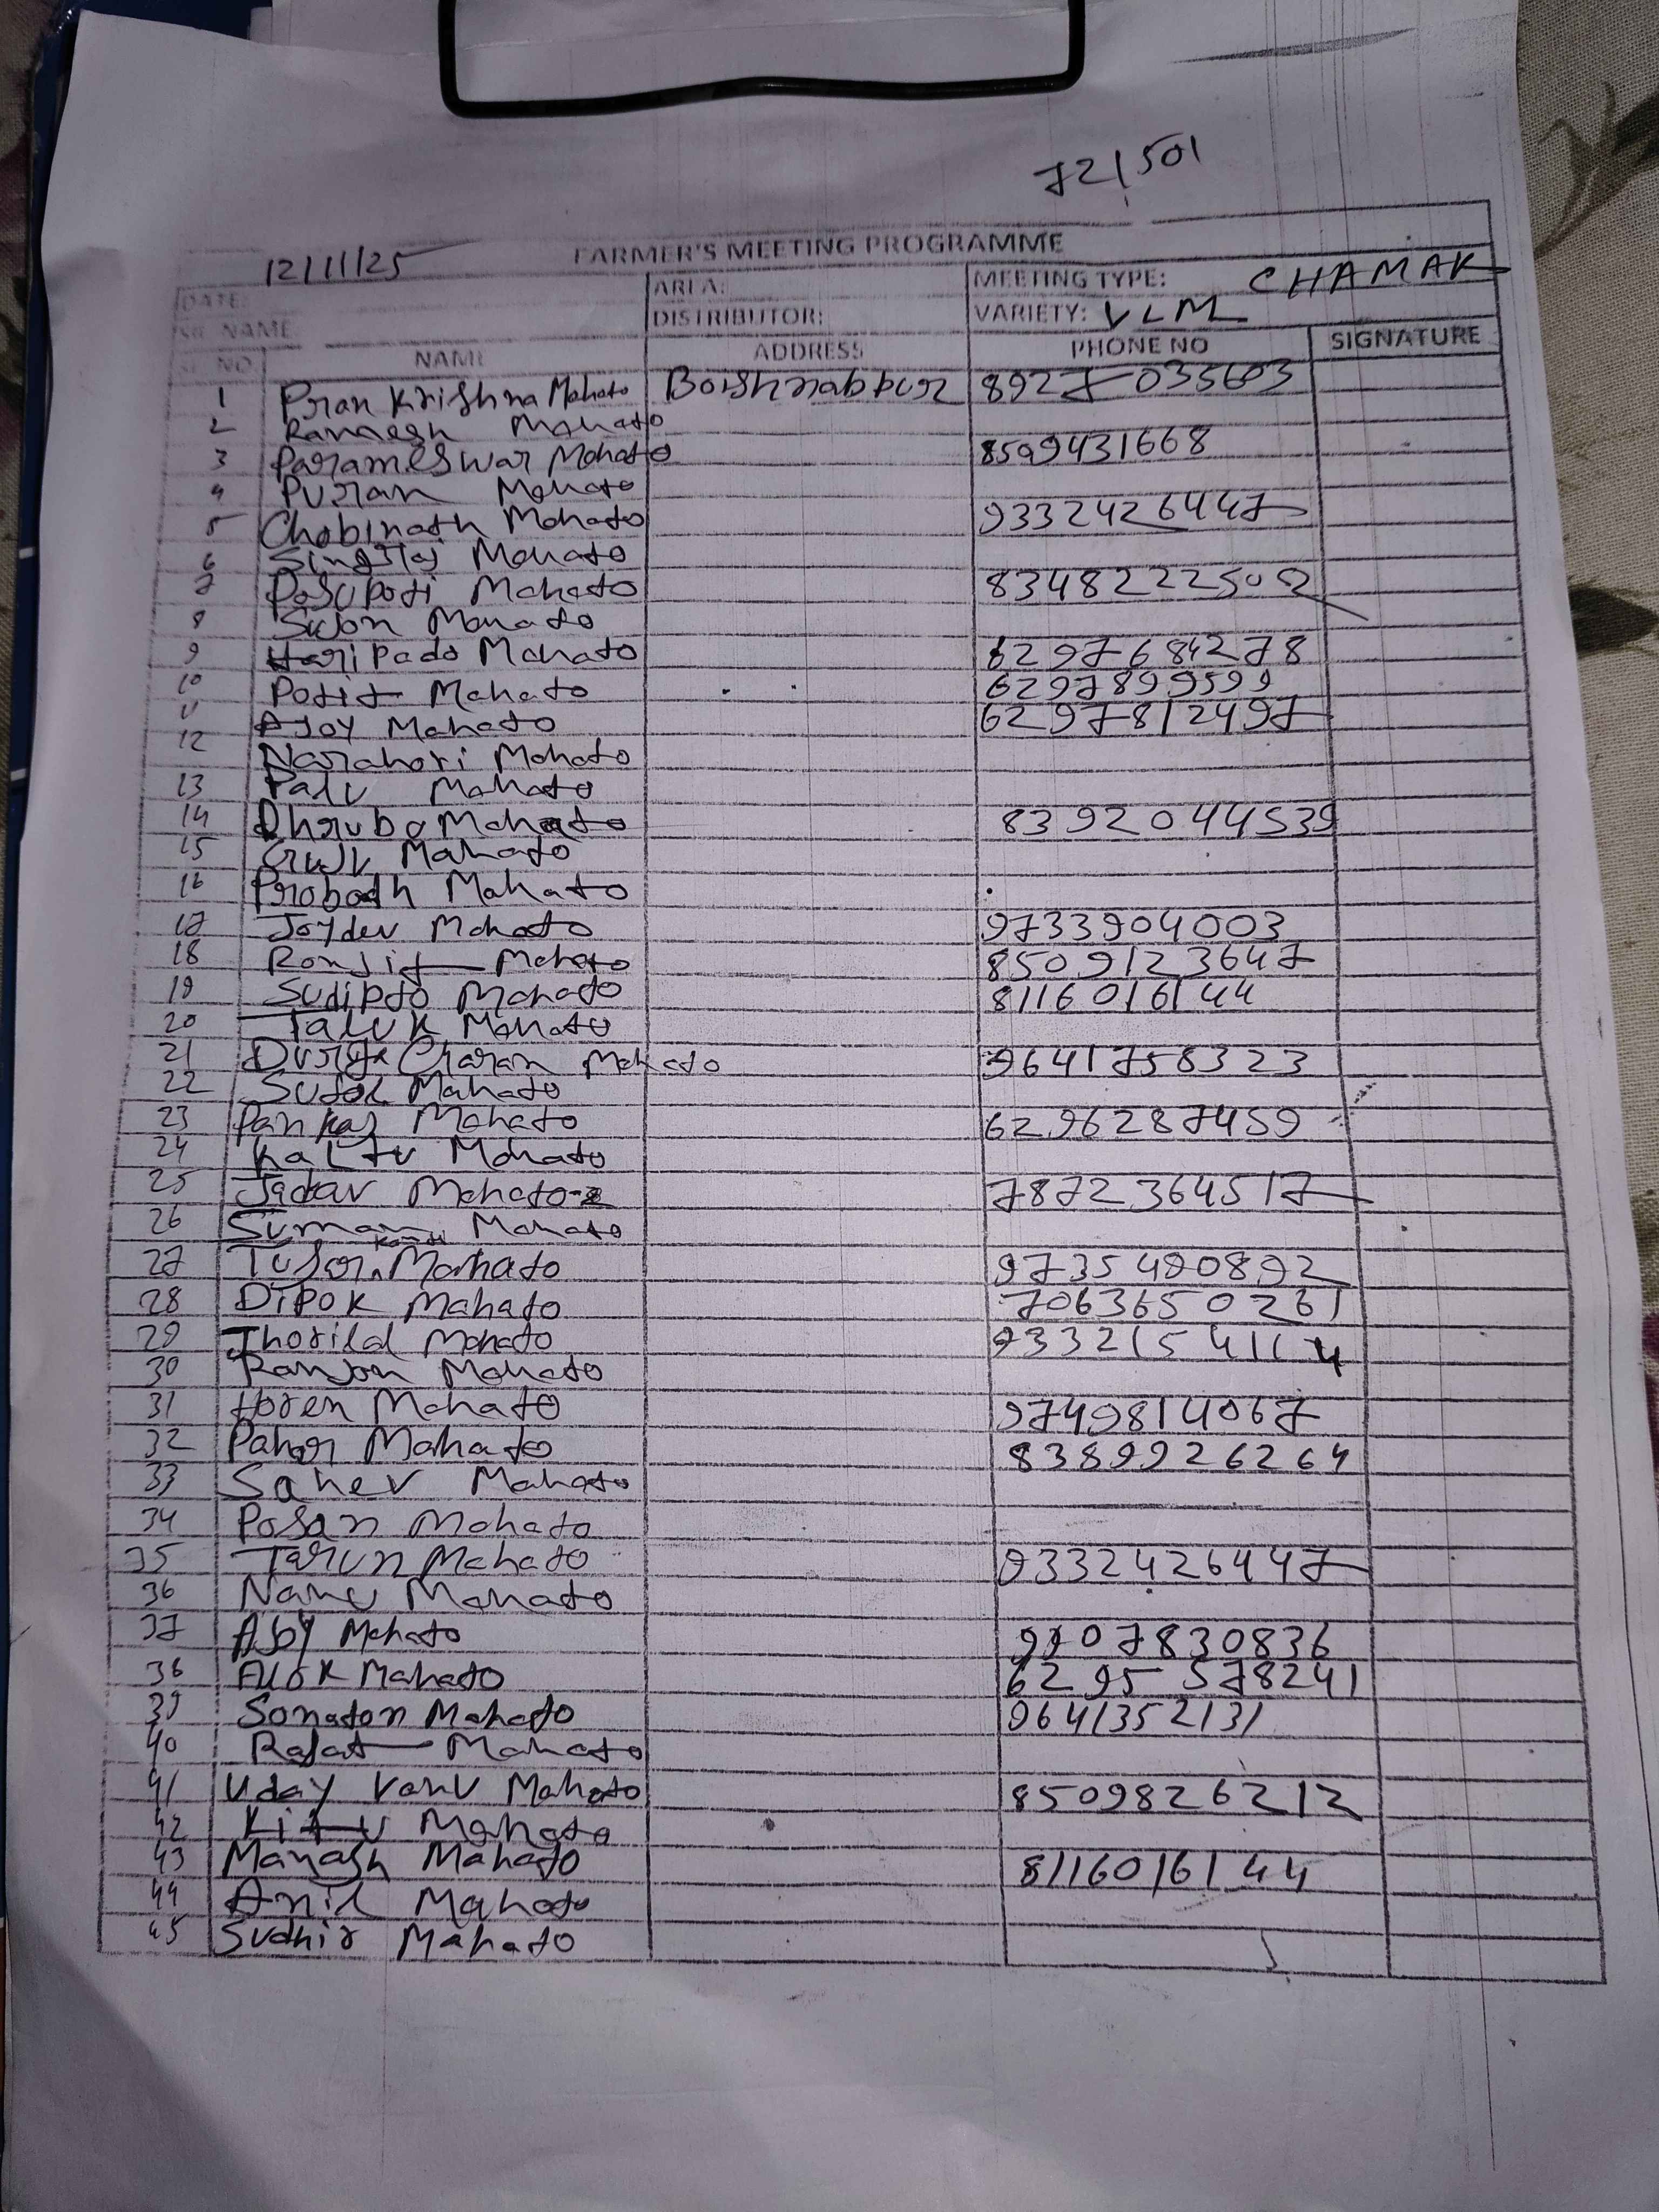 721501
FARMER'S MEETING PROGRAMME
DATE: 12/11/25 AREA: MEETING TYPE: CHAMAK
SE. NAME DISTRIBUTOR: VARIETY: VLM
SL NO NAME ADDRESS PHONE NO SIGNATURE
1 Pran Krishna Mahato Boishnabpur 8927035603
2 Ramesh Mahato
3 Parameswar Mahato 8509431668
4 Puran Mahato
5 Chabinath Mahato 9332426447
6 Mahato
7 Pasupati Mahato 8348222502
8 Sujon Mahato
9 Haripado Mahato 6297684278
10 Potit Mahato 6297899599
11 AJoy Mahato 6297812497
12 Narahari Mahato
13 Palu Mahato
14 Dhruba Mahato 8392044539
15 Mahato
16 Probodh Mahato
17 Joydev Mahato 9733904003
18 Ronjit Mahato 8509123647
19 Sudipto Mahato 8116016144
20 Taluk Mahato
21 Durga Charan Mahato 9641758323
22 Mahato
23 Pankaj Mahato 6296287459
24 Kaltu Mahato
25 Jadav Mahato 7872364517
26 Suman Mahato
27 Tusar Kanti Mahato 9735490892
28 Dipok Mahato 7063650261
29 Mahato 9332154114
30 Ranjan Mahato
31 Horen Mahato 9749814067
32 Pahar Mahato 8389926264
33 Sahev Mahato
34 Posan Mahato
35 Tarun Mahato 9332426447
36 Nanu Mahato
37 Mahato 9907830836
38 Alok Mahato 6295578241
39 Sonaton Mahato 9641352131
40 Rajat Mahato
41 Uday Vanu Mahato 8509826212
42 Kitu Mahato
43 Manash Mahato 8116016144
44 Anil Mahato
45 Sudhir Mahato